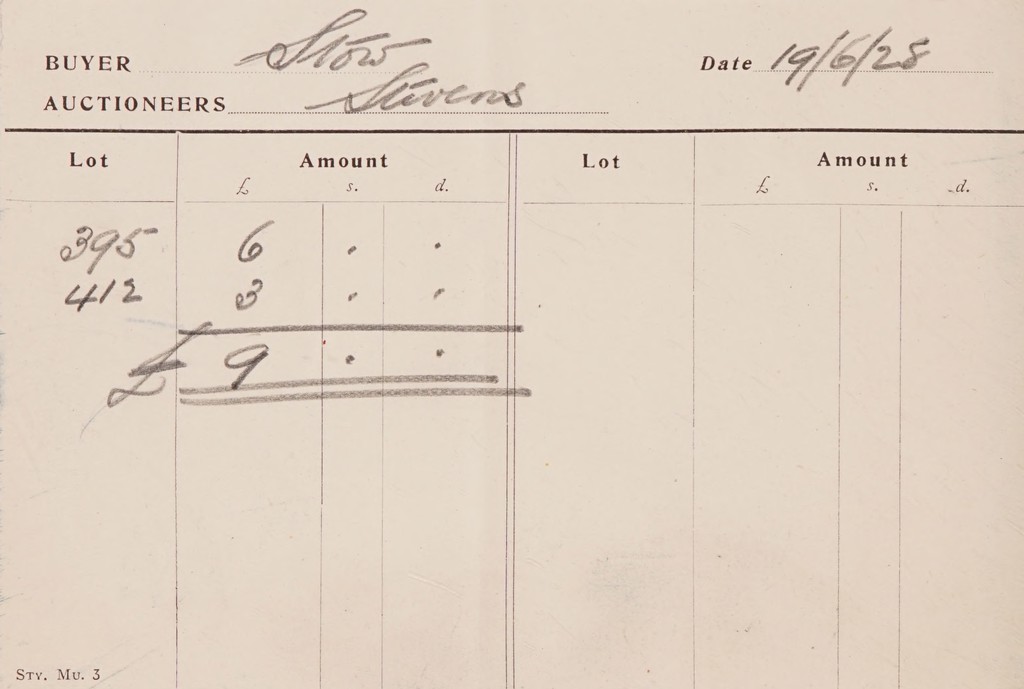 BUYER Stow Date 19/6/28
AUCTIONEERS Stevens
Lot Amount Lot Amount
£ s. d. £ s. d.
395 6 . .
412 3 . .
£ 9 . .
STY. MU. 3